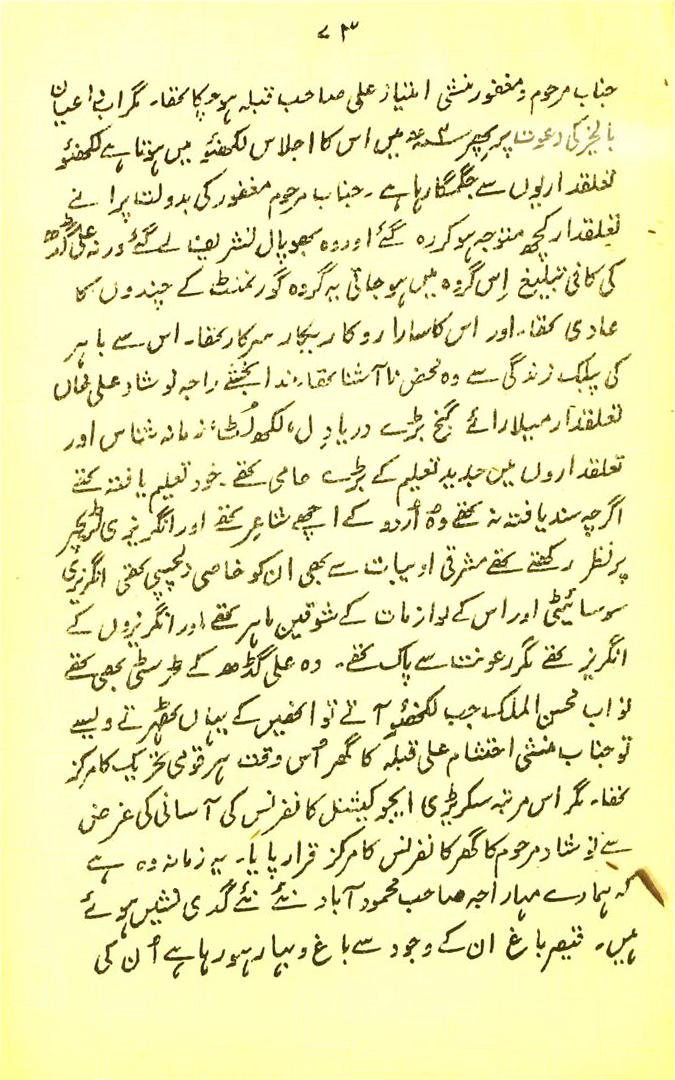 ۷۳
جناب مرحوم و مغفور منشی امتیاز علی صاحب قبلہ ہو چکا تھا۔ مگر اب داعیان
بالخیر کی دعوت پر پھر سنہ ۴ء میں اس کا اجلاس لکھنئو میں ہوتا ہے لکھنئو
تعلقداریوں سے جگمگا رہا ہے۔ جناب مرحوم مغفور کی بدولت پرانے
تعلقدار کچھ متوجہ ہو کر رہ گئے اور وہ بھوپال تشریف لے گئے ورنہ علی گڈھ
کی کافی تبلیغ اِس گروہ میں ہو جاتی یہ گروہ گورنمنٹ کے چندوں کا
عادی تھا۔ اور اس کا سارا رو کار بجار سرکار تھا۔ اس سے باہر
کی پبلک زندگی سے وہ محض نا آشنا تھا۔ خدا بخشے راجہ نوشاد علی خاں
تعلقدار میلا رائے گنج بڑے دریا دِل، لکھ لُٹ، زمانہ شناس اور
تعلقداروں میں جدید تعلیم کے بڑے حامی تھے۔ خود تعلیم یافتہ تھے
اگرچہ سند یافتہ نہ تھے وہ اُردو کے اچھے شاعر تھے اور انگریزی لٹریچر
پر نظر رکھتے تھے مشرقی ادبیات سے بھی ان کو خاصی دلچسپی تھی انگریزی
سوسائیٹی اور اس کے لوازمات کے شوقین ماہر تھے اور انگریزوں کے
انگریز تھے مگر رعونت سے پاک تھے۔ وہ علی گڈھ کے ٹرسٹی بھی تھے
نواب محسن الملک جب لکھنئو آتے تو انھیں کے یہاں ٹھہرتے ویسے
تو جناب منشی احتشام علی قبلہ کا گھر اُس وقت ہر قومی تحریک کا مرکز
تھا۔ مگر اس مرتبہ سکریٹری ایجوکیشنل کانفرنس کی آسانی کی غرض
سے نوشاد مرحوم کا گھر کانفرنس کا مرکز قرار پایا۔ یہ زمانہ وہ ہے
کہ ہمارے مہاراجہ صاحب محمود آباد نئے نئے گدی نشیں ہوئے
ہیں۔ قیصر باغ ان کے وجود سے باغ و بہار ہو رہا ہے اُن کی